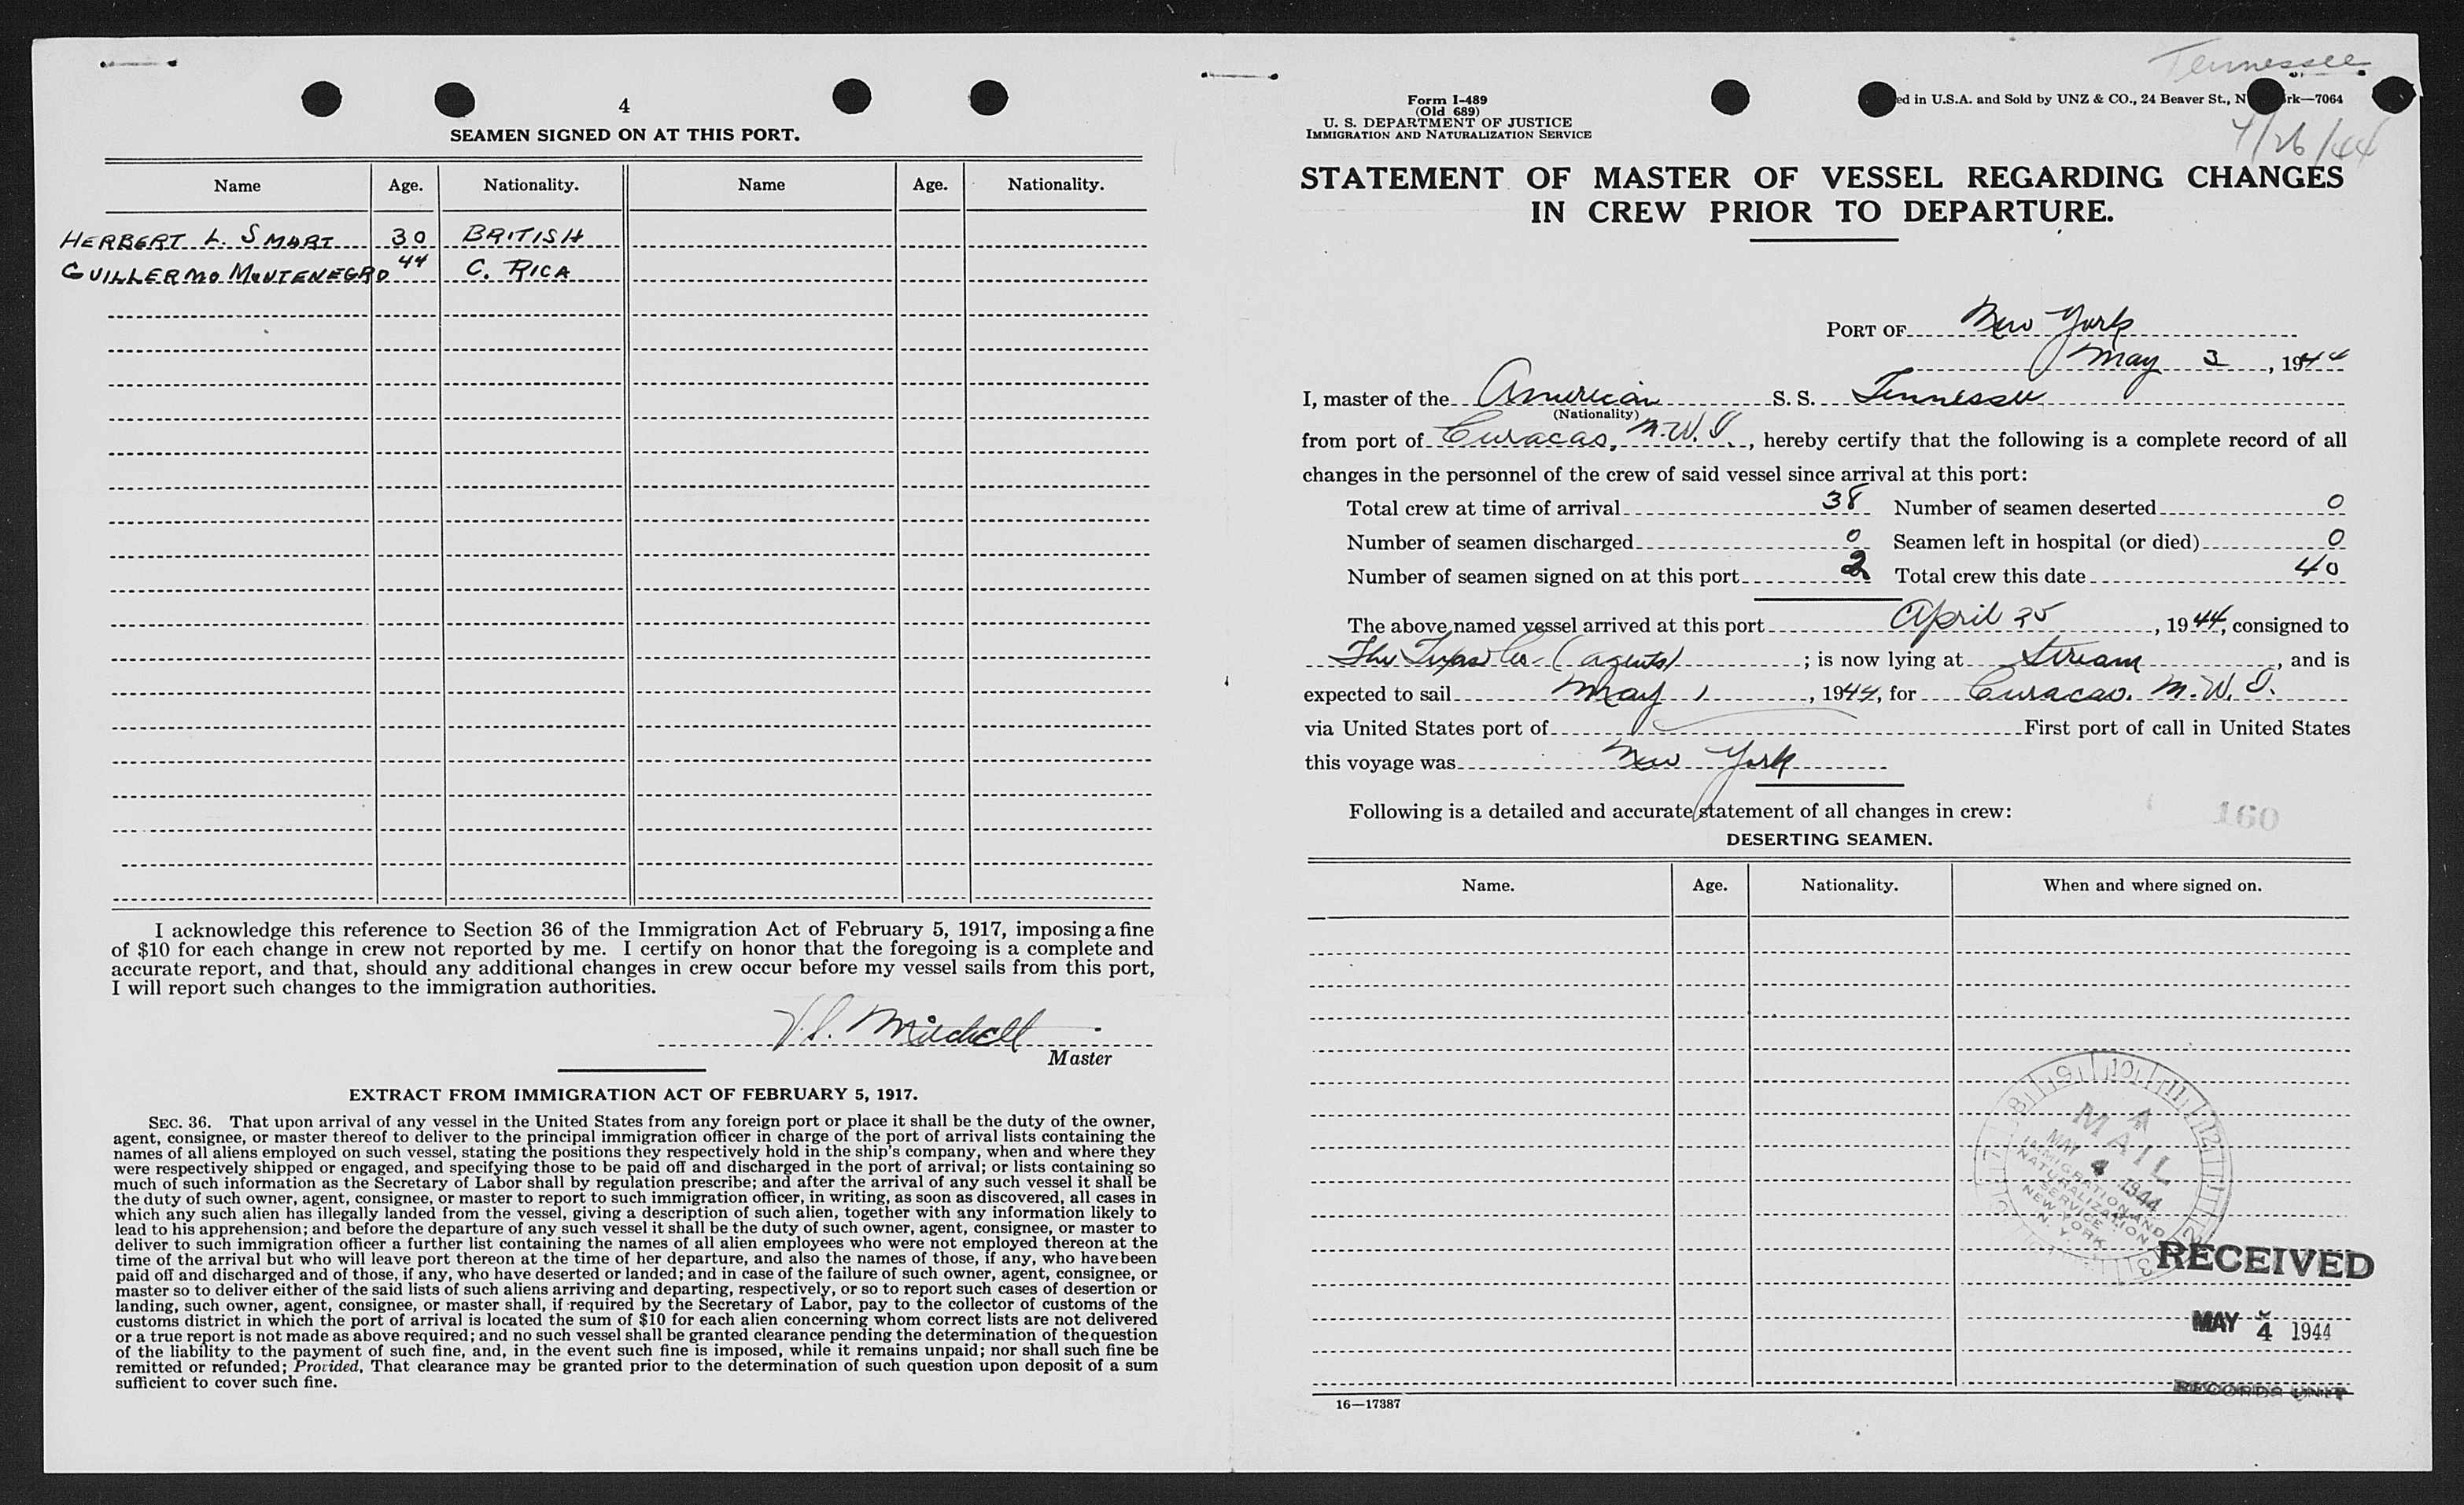 4
SEAMEN SIGNED ON AT THIS PORT.
Name Age. Nationality. Name Age. Nationality.
HERBERT L. SMART 30 BRITISH
GUILLERMO MONTENEGRO 44 C. RICA
I acknowledge this reference to Section 36 of the Immigration Act of February 5, 1917, imposing a fine
of $10 for each change in crew not reported by me. I certify on honor that the foregoing is a complete and
accurate report, and that, should any additional changes in crew occur before my vessel sails from this port,
I will report such changes to the immigration authorities.
Mitchell
Master
EXTRACT FROM IMMIGRATION ACT OF FEBRUARY 5, 1917.
SEC. 36. That upon arrival of any vessel in the United States from any foreign port or place it shall be the duty of the owner,
agent, consignee, or master thereof to deliver to the principal immigration officer in charge of the port of arrival lists containing the
names of all aliens employed on such vessel, stating the positions they respectively hold in the ship's company, when and where they
were respectively shipped or engaged, and specifying those to be paid off and discharged in the port of arrival; or lists containing so
much of such information as the Secretary of Labor shall by regulation prescribe; and after the arrival of any such vessel it shall be
the duty of such owner, agent, consignee, or master to report to such immigration officer, in writing, as soon as discovered, all cases in
which any such alien has illegally landed from the vessel, giving a description of such alien, together with any information likely to
lead to his apprehension; and before the departure of any such vessel it shall be the duty of such owner, agent, consignee, or master to
deliver to such immigration officer a further list containing the names of all alien employees who were not employed thereon at the
time of the arrival but who will leave port thereon at the time of her departure, and also the names of those, if any, who have been
paid off and discharged and of those, if any, who have deserted or landed; and in case of the failure of such owner, agent, consignee, or
master so to deliver either of the said lists of such aliens arriving and departing, respectively, or so to report such cases of desertion or
landing, such owner, agent, consignee, or master shall, if required by the Secretary of Labor, pay to the collector of customs of the
customs district in which the port of arrival is located the sum of $10 for each alien concerning whom correct lists are not delivered
or a true report is not made as above required; and no such vessel shall be granted clearance pending the determination of the question
of the liability to the payment of such fine, and, in the event such fine is imposed, while it remains unpaid; nor shall such fine be
remitted or refunded; Provided, That clearance may be granted prior to the determination of such question upon deposit of a sum
sufficient to cover such fine.
Tennessee
Form I-489
(Old 689)
U. S. DEPARTMENT OF JUSTICE
IMMIGRATION AND NATURALIZATION SERVICE
ed in U.S.A. and Sold by UNZ & CO., 24 Beaver St., N rk—7064
/26/44
STATEMENT OF MASTER OF VESSEL REGARDING CHANGES
IN CREW PRIOR TO DEPARTURE.
PORT OF New York
May 3, 1944
I, master of the American S. S. Tennessee
(Nationality)
from port of Curacao, N.W.I., hereby certify that the following is a complete record of all
changes in the personnel of the crew of said vessel since arrival at this port:
Total crew at time of arrival 38 Number of seamen deserted 0
Number of seamen discharged 0 Seamen left in hospital (or died) 0
Number of seamen signed on at this port 2 Total crew this date 40
The above named vessel arrived at this port April 25, 1944, consigned to
The Texas Co. (agents); is now lying at Stream, and is
expected to sail May 1, 1944, for Curacao. N.W.I.
via United States port of First port of call in United States
this voyage was New York
Following is a detailed and accurate statement of all changes in crew:
160
DESERTING SEAMEN.
Name. Age. Nationality. When and where signed on.
A
MAIL
MAY 4 1944
IMMIGRATION AND
NATURALIZATION
SERVICE
NEW YORK
N. Y.
RECEIVED
MAY 4 1944
RECORDS UNIT
16—17387